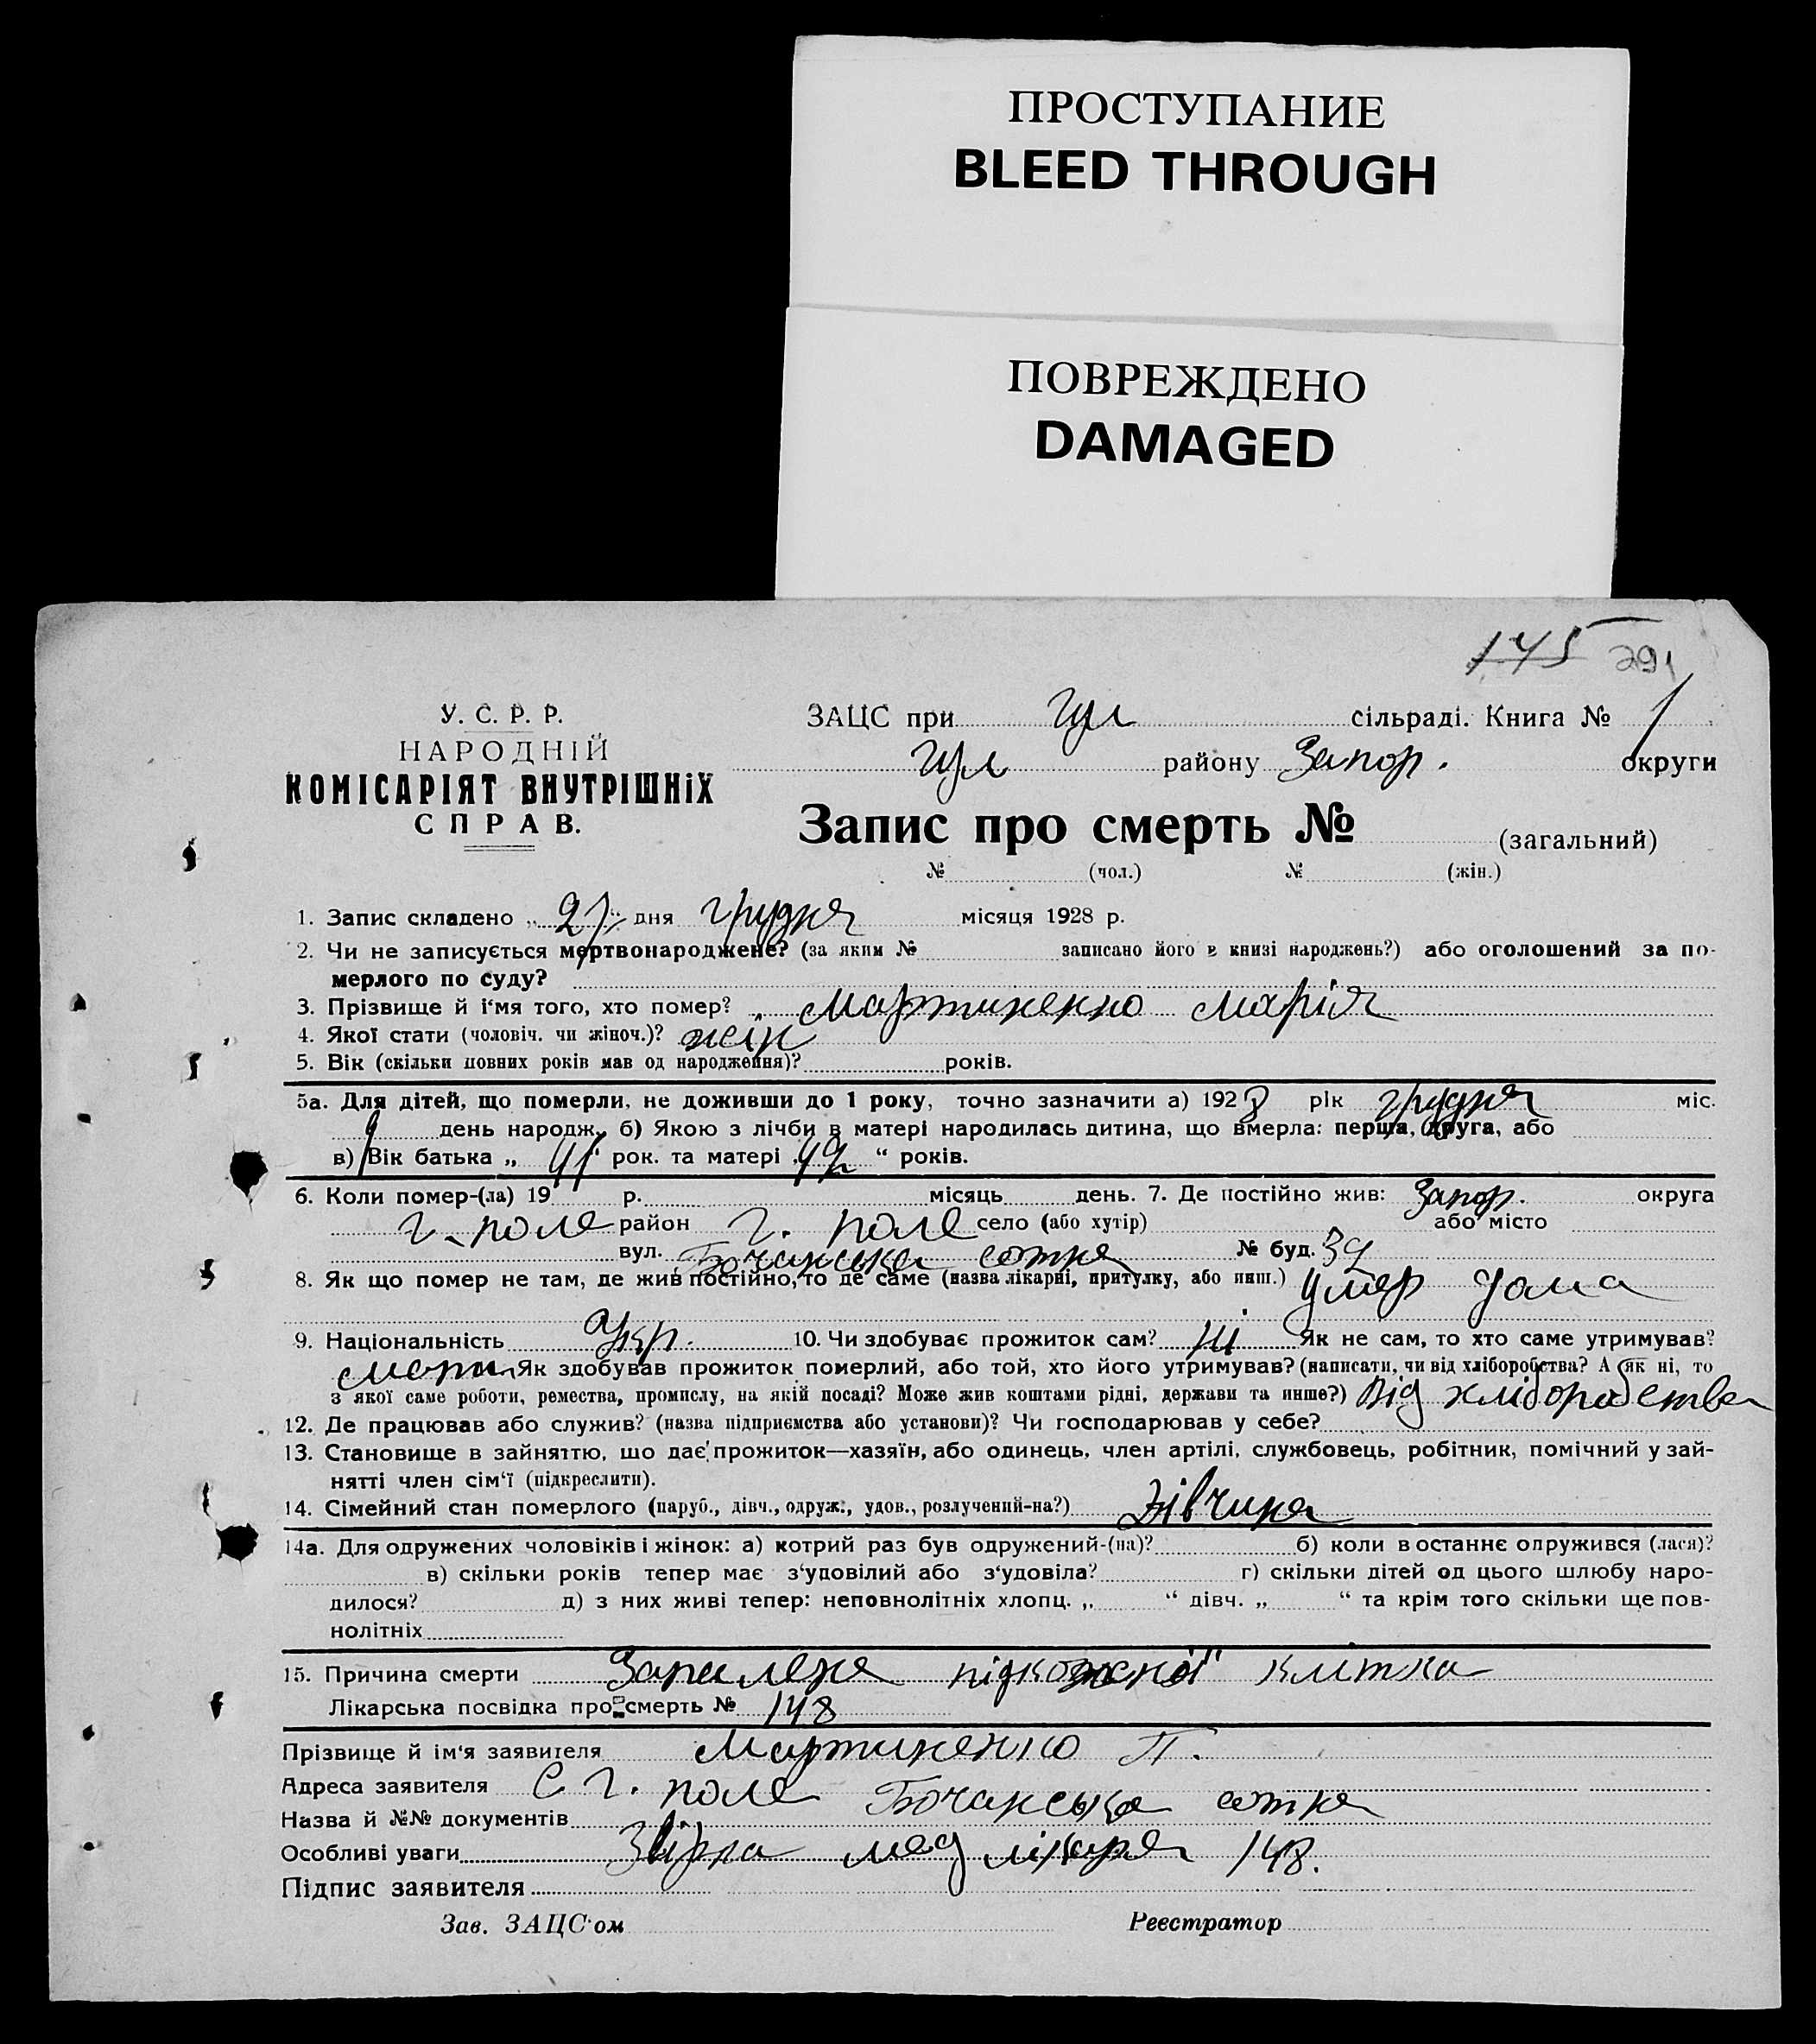 ПРОСТУПАНИЕ
BLEED THROUGH
ПОВРЕЖДЕНО
DAMAGED
145 291
У. С. Р. Р.
НАРОДНІЙ
КОМІСАРІЯТ ВНУТРІШНІХ
СПРАВ.
ЗАЦС при Гул сільраді. Книга № 1
Гул району Запор. округи
Запис про смерть № (загальний)
№ (чол.) № (жін.)
1. Запис складено „27“ дня грудня місяця 1928 р.
2. Чи не записується мертвонароджене? (за яким № записано його в книзі народжень?) або оголошений за по-
мерлого по суду?
3. Прізвище й і'мя того, хто помер? Мартиненко Марія
4. Якої стати (чоловіч. чи жіноч.)? жін
5. Вік (скільки повних років мав од народження)? років.
5а. Для дітей, що померли, не доживши до 1 року, точно зазначити а) 1928 рік грудня міс.
9 день народж., б) Якою з лічби в матері народилась дитина, що вмерла: перша, друга, або
в) Вік батька „41“ рок. та матері „42“ років.
6. Коли помер-(ла) 19 р. місяць день. 7. Де постійно жив: Запор. округа
Г. поле район Г. поле село (або хутір) або місто
вул. Бочанська сотня № буд. 39
8. Як що помер не там, де жив постійно, то де саме (назва лікарні, притулку, або инш.) умер дома
9. Національність Укр. 10. Чи здобуває прожиток сам? ні Як не сам, то хто саме утримував?
мати Як здобував прожиток померлий, або той, хто його утримував? (написати, чи від хліборобства? А як ні, то
з якої саме роботи, ремества, промислу, на якій посаді? Може жив коштами рідні, держави та инше?) від хліборобства
12. Де працював або служив? (назва підприємства або установи)? Чи господарював у себе?
13. Становище в зайняттю, що дає прожиток—хазяїн, або одинець, член артілі, службовець, робітник, помічний у зай-
нятті член сім'ї (підкреслити).
14. Сімейний стан померлого (паруб., дівч., одруж., удов., розлучений-на?) Дівчина
14а. Для одружених чоловіків і жінок: а) котрий раз був одружений-(на)? б) коли в останнє одружився (лася)?
в) скільки років тепер має з'удовілий або з'удовіла? г) скільки дітей од цього шлюбу наро-
дилося? д) з них живі тепер: неповнолітніх хлопц. „ “ дівч. „ “ та крім того скільки ще пов-
нолітніх
15. Причина смерти Запалення підкожної клітки
Лікарська посвідка про смерть № 148
Прізвище й ім'я заявителя Мартиненко П.
Адреса заявителя С Г. поле Бочанська сотня
Назва й №№ документів
Особливі уваги мед лікаря 148.
Підпис заявителя
Зав. ЗАЦС'ом Реєстратор